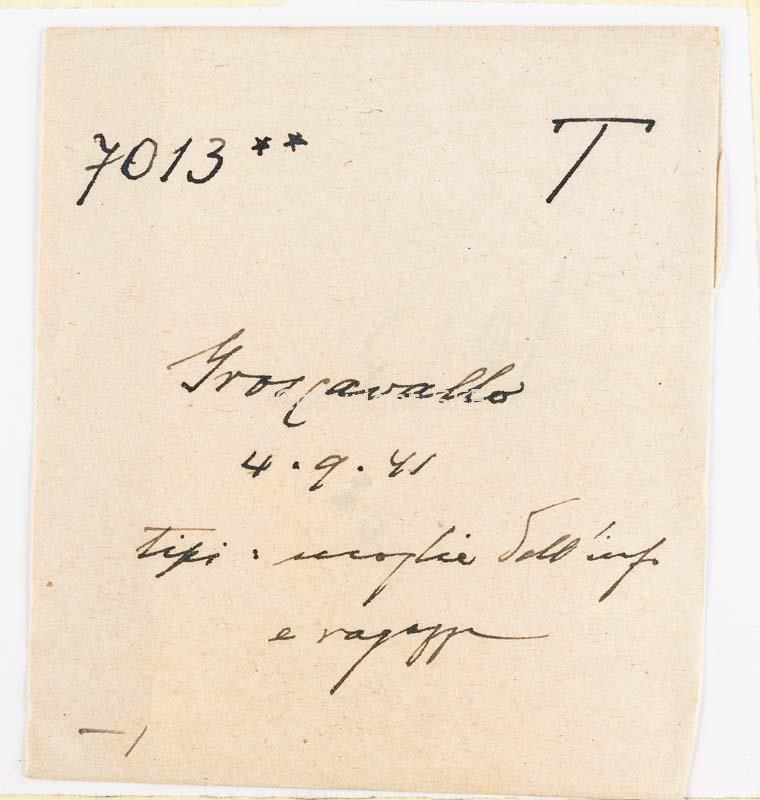 7013 ** T
Groscavallo
4.9.41
tipi: moglie dell'inf.
e ragazzi
— 1